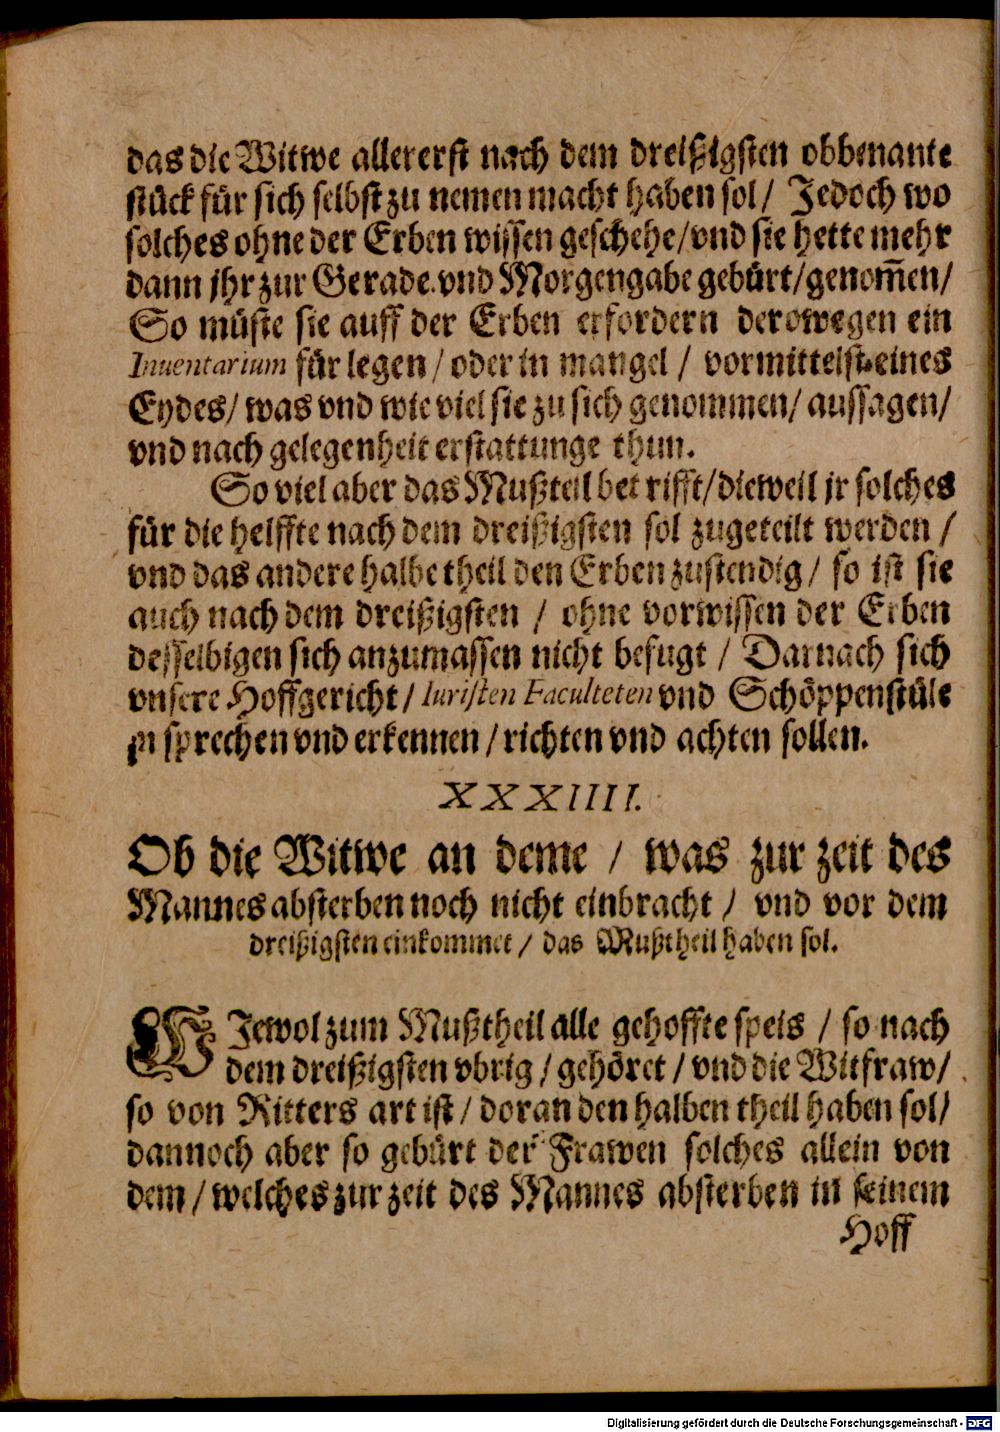 das die Witwe allererst nach dem dreißigsten obbenante
stück für sich selbst zu nemen macht haben sol / Jedoch wo
solches ohne der Erben wissen geschehe / vnd sie hette mehr
dann jhr zur Gerade vnd Morgengabe gebürt / genom̅en /
So müste sie auff der Erben erfordern derowegen ein
Inuentarium für legen / oder in mangel / vormittelst eines
Eydes / was vnd wie viel sie zu sich genommen / aussagen /
vnd nach gelegenheit erstattunge thun.
So viel aber das Mußteil betrifft / dieweil jr solches
für die helffte nach dem dreißigsten sol zugeteilt werden /
vnd das andere halbe theil den Erben zustendig / so ist sie
auch nach dem dreißigsten / ohne vorwissen der Erben
desselbigen sich anzumassen nicht befugt / Darnach sich
vnsere Hoffgericht / Iuristen Faculteten vnd Schöppenstüle
zu sprechen vnd erkennen / richten vnd achten sollen.
XXXIIII.
Ob die Witwe an deme / was zur zeit des
Mannes absterben noch nicht einbracht / vnd vor dem
dreißigsten einkommet / das Mußtheil haben sol.
WJewol zum Mußtheil alle gehoffte speis / so nach
dem dreißigsten vbrig / gehöret / vnd die Witfraw /
so von Ritters art ist / doran den halben theil haben sol /
dannoch aber so gebürt der Frawen solches allein von
dem / welches zur zeit des Mannes absterben in seinem
Hoff
Digitalisierung gefördert durch die Deutsche Forschungsgemeinschaft - DFG